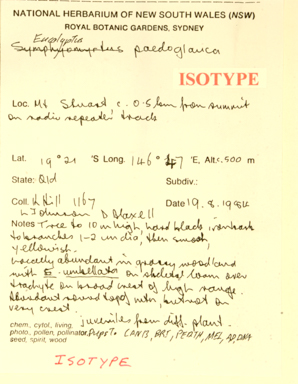 NATIONAL HERBARIUM OF NEW SOUTH WALES (NSW)
ROYAL BOTANIC GARDENS, SYDNEY
Eucalyptus
Symphyomyrtus paedoglauca
ISOTYPE
Loc. Mt Stuart c. 0.5 km from summit
on radio repeater track
Lat. 19° 21 'S Long. 146° 47 'E, Alt. c. 500 m
State: Qld Subdiv.:
Coll. K Hill 1167 Date 19.8.1984
L Johnson D Blaxell
Notes Tree to 10 m high, hard black ironbark
to branches 1-2 cm dia, then smooth,
yellowish.
Locally abundant in grassy woodland
with E. umbellata on skeletal loam over
trachyte on broad crest of high range.
Abundant round top of mtn, but not on
very crest.
juveniles from diff. plant.
chem, cytol, living,
photo, pollen, pollinator, Dups To CANB, BRI, PERTH, MEL, AD, DNA
seed, spirit, wood
ISOTYPE